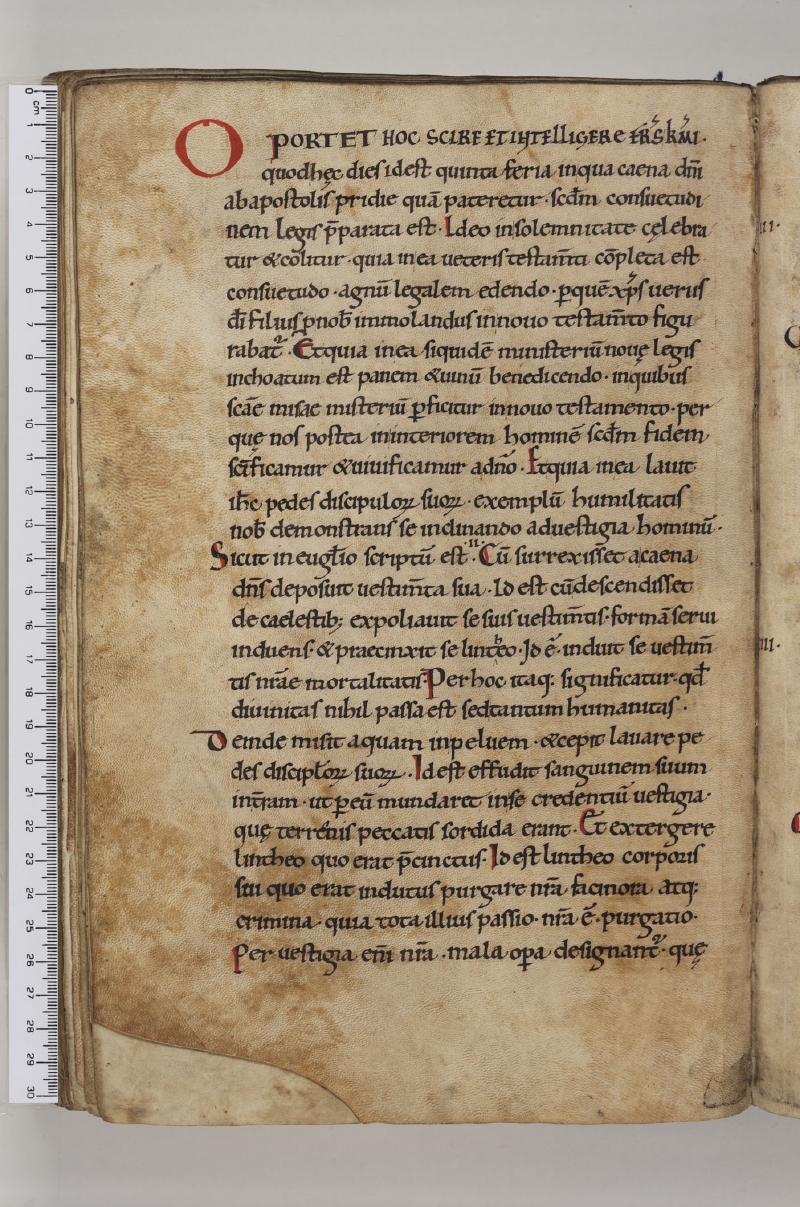 OPORTET HOC SCIRE ET INTELLIGERE FR̅S K̅MI·
quod hęc dies id est quinta feria in qua caena dn̅i
ab apostolis pridie quā pateretur · scd̅m consuetudi
nem legis p̅parata est · Ideo in solemnitate cęlebra
tur & cōlitur · quia in ea ueteris testam̅ti cōpleta est
consuetudo · agnū legalem edendo · ꝑ quē xp̅s uerus
di̅ filius ꝓ nob̅ immolandus in nouo testam̅to figu
rabat᷑ · Et quia in ea siquidē ministeriū nouę legis
inchoatum est panem & uinū benedicendo · in quibus
sc̅ae misae misteriū ꝑficitur in nouo testamento · per
quę nos postea in interiorem hominē scd̅m fidem
sc̅ificamur & uiuificamur a dn̅o · Et quia in ea lauit
ih̅c pedes discipuloꝝ suoꝝ · exemplū humilitatis
nob̅ demonstrans se inclinando ad uestigia hominū ·
Sicut in eugl̅io scriptū est · Cū surrexisset a caena
dn̅s deposuit uestim̅ta sua · Id est cū descendisset
de caelestib; expoliauit se suis uestim̅tis · formā serui
induens · & praecinxit se linteo · Id ē · induit se uestim̅
tis nr̅ae mortalitatis · Per hoc itaq; significatur · qd̅
diuinitas nihil passa est sed tantum humanitas ·
Deinde misit aquam in peluem · & cepit lauare pe
des discipl̅oꝝ suoꝝ · Id est effudit sanguinem suum
in t̅ram · ut ꝑ eū mundaret in se credentiū uestigia ·
quę terrenis peccatis sordida erant · Et extergere
lintheo quo erat p̅cinctus · Id est lintheo corporis
sui quo erat indutus purgare nr̅a facinora atq;
crimina · quia tota illius passio · nr̅a ē · purgatio ·
Per uestigia eni̅ nr̅a · mala oꝑa designant᷑ · quę